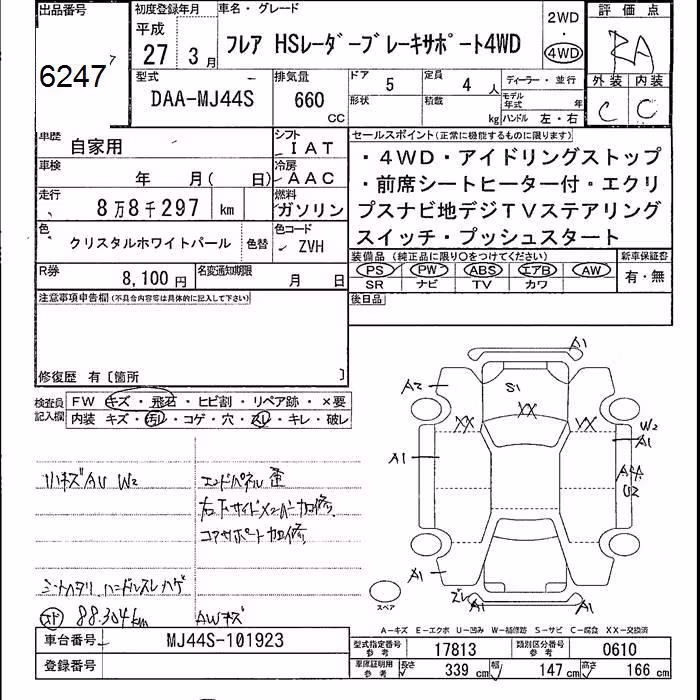 出品番号
6247
初度登録年月
平成
27年 3月
車名・グレード
フレア HSレーダーブレーキサポート4WD
2WD
4WD
評価点
RA
外装 内装
C C
型式
DAA-MJ44S
排気量
660
CC
ドア
5
定員
4 人
形状
積載
kg
ディーラー・並行
モデル年式 年
ハンドル 左・右
車歴
自家用
シフト
IAT
車検
年 月( 日)
冷房
AAC
走行
8万8千297 km
燃料
ガソリン
色
クリスタルホワイトパール
色替
色コード
ZVH
R券
8,100円
名変通知期限
月 日
セールスポイント(正常に機能するものに限ります)
・4WD・アイドリングストップ
・前席シートヒーター付・エクリ
プスナビ地デジTVステアリング
スイッチ・プッシュスタート
装備品 (純正品に限り○をつけてください)
PS PW ABS エアB AW
SR ナビ TV カワ
新車保証書
有・無
後日品
注意事項申告欄(不具合内容等は具体的に記入して下さい)
修復歴 有〔箇所 〕
検査員
記入欄
FW キズ・飛石・ヒビ割・リペア跡・×要
内装 キズ・汚レ・コゲ・穴・スレ・キレ・破レ
小キズAU W2
エンドパネル歪
右下サイドメンバー加修
コアサポート加修
シートヘタリ、ハンドルスレハゲ
88.304km
AWキズ
A1
A2
S1
XX
XX
XX
W2
A1
A1
A1
A1
スレ
A1
スペア
A－キズ E－エクボ U－凹み W－補修跡 S－サビ C－腐食 XX－交換済
車台番号
MJ44S-101923
登録番号
型式指定番号
参考
17813
類別区分番号
参考
0610
車庫証明用
参考
長さ 339 cm
幅 147 cm
高さ 166 cm